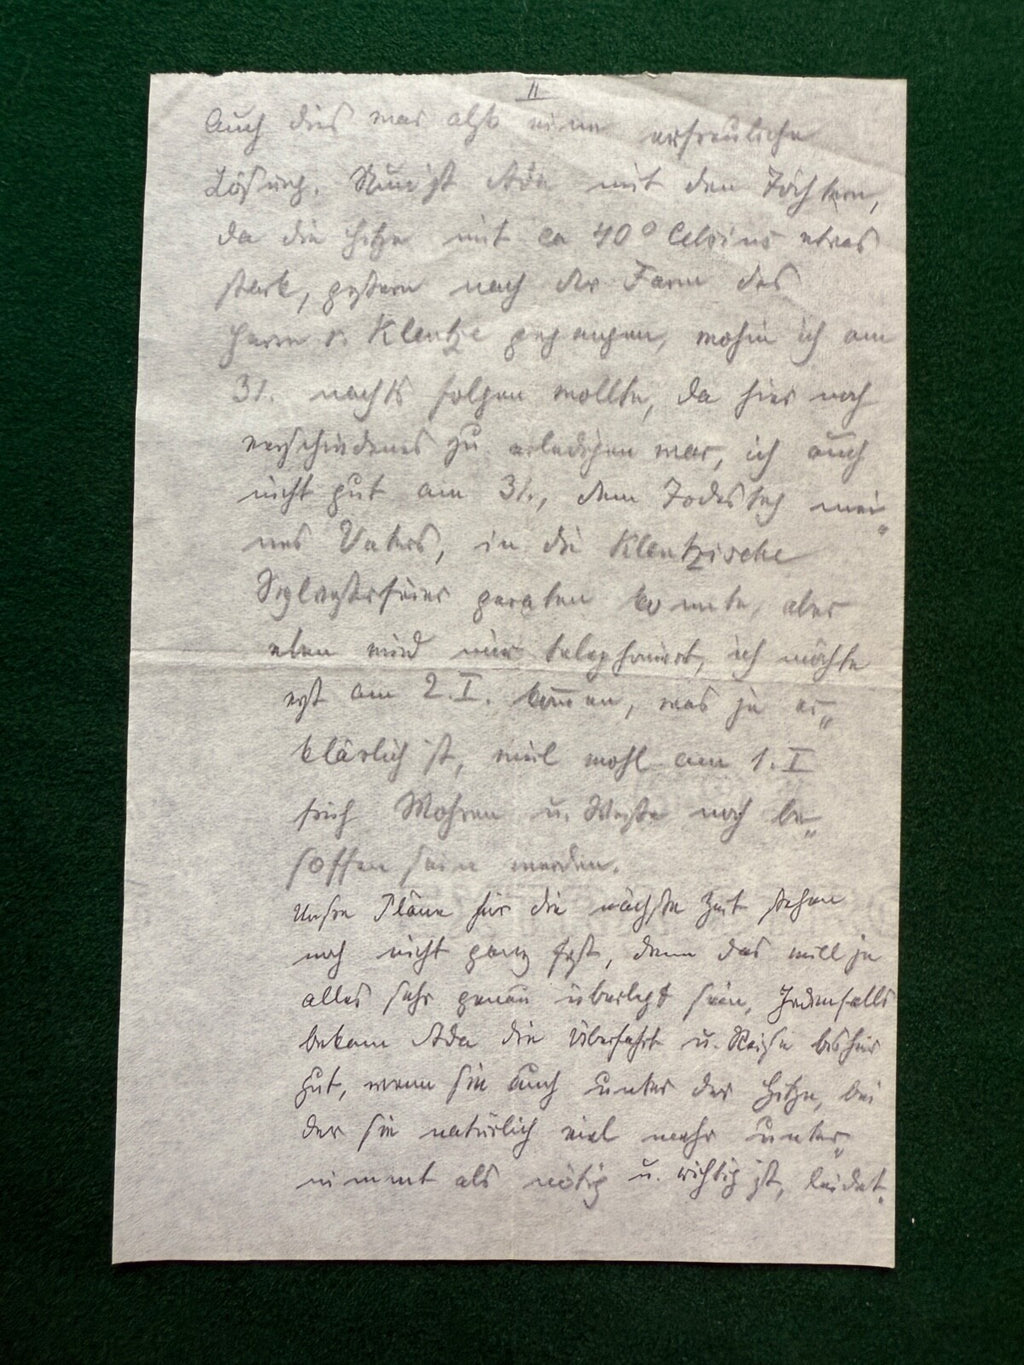 II
Auch dies war also eine erfreuliche
Lösung. Nun ist Ada mit den Töchtern,
da die Hitze mit ca 40° Celsius etwas
stark, gestern nach der Farm des
Herrn v. Klentze gegangen, wohin ich am
31. nachts folgen wollte, da hier noch
verschiedenes zu erledigen war, ich auch
nicht gut am 31., dem Todestag mei-
nes Vaters, in die Klentzische
Sylvesterfeier geraten konnte, aber
eben wird mir telephoniert, ich möchte
erst am 2. I. kommen, was ja er-
klärlich ist, weil wohl am 1. I
früh Mohren u. Weiße noch be-
soffen sein werden.
Unsre Pläne für die nächste Zeit stehen
noch nicht ganz fest, denn das will ja
alles sehr genau überlegt sein, Jedenfalls
bekam Ada die Überfahrt u. Reise bisher
gut, wenn sie auch unter der Hitze, bei
der sie natürlich viel mehr unter-
nimmt als nötig u. richtig ist, leidet.